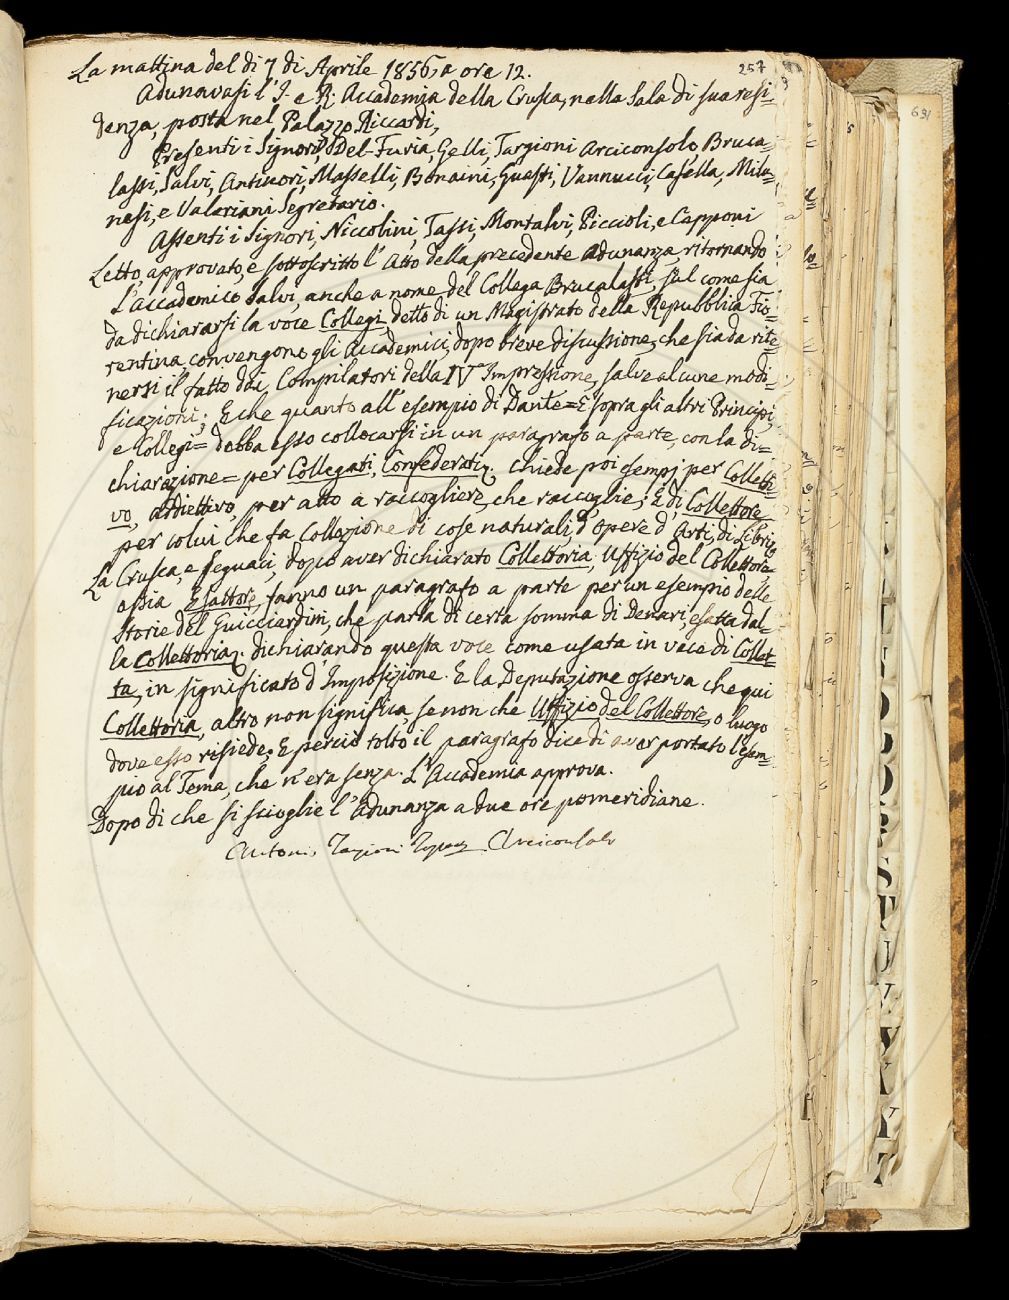 257
La mattina del dì 7 di Aprile 1856, a ore 12.
Adunavasi l'I. e R. Accademia della Crusca, nella Sala di sua resi=
denza, posta nel Palazzo Riccardi,
Presenti i Signori, Del-Furia, Gelli, Targioni Arciconsolo, Bruca=
lassi, Salvi, Antinori, Masselli, Bonaini, Guasti, Vannucci, Casella, Mila=
nesi, e Valeriani Segretario.
Assenti i Signori, Niccolini, Tassi, Montalvi, Piccioli, e Capponi
Letto, approvato, e sottoscritto l'Atto della precedente Adunanza, ritornando
L'Accademico Salvi, anche a nome del Collega Brucalassi, sul come sia
da dichiararsi la voce Collegi detto di un Magistrato della Repubblica Fio=
rentina, convengono gli Accademici, dopo breve discussione, che sia da rite=
nersi il fatto dai Compilatori della IVa Impressione, salve alcune modi=
ficazioni; E che quanto all'esempio di Dante = E sopra gli altri Principi,
e Collegi = debba esso collocarsi in un paragrafo a parte, con la di=
chiarazione = per Collegati, Confederati. Chiede poi esempj per Colletti=
vo, addiettivo, per atto a raccogliere, che raccoglie; E di Collettore
per colui che fa Collezione di cose naturali, d'opere d'Arti, di Libri.
La Crusca, e seguaci, dopo aver dichiarato Collettoria, Uffizio del Collettore
ossia Esattore, fanno un paragrafo a parte per un esempio delle
Storie del Guicciardini, che parla di certa somma di Denari, esatta dal=
la Collettoria, dichiarando questa voce come usata in vece di Collet=
ta, in significato d'Imposizione. E la Deputazione osserva che qui
Collettoria, altro non significa, se non che Uffizio del Collettore, o luogo
dove esso risiede; E perciò tolto il paragrafo dice di aver portato l'esem=
pio al Tema, che n'era senza. L'Accademia approva.
Dopo di che si scioglie l'Adunanza a due ore pomeridiane.
Antonio Targioni Arciconsolo
691
S
T
U
V
X
Y
Z